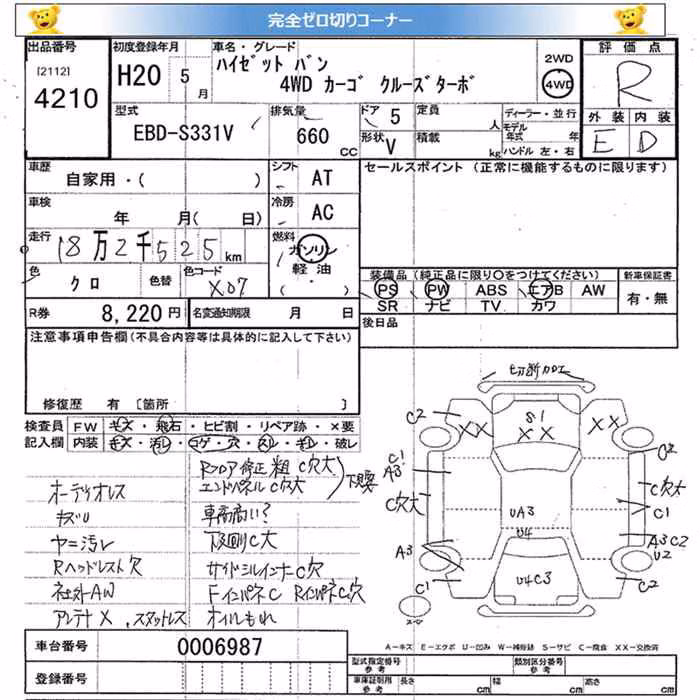 完全ゼロ切りコーナー
出品番号
[2112]
4210
初度登録年月
H20 5月
車名・グレード
ハイゼット バン
4WD カーゴ クルーズターボ
2WD
4WD
評価点
R
外装 内装
E D
型式
EBD-S331V
排気量
660
CC
ドア 5
形状 V
定員
人
積載
kg
ディーラー・並行
モデル
年式 年
ハンドル 左・右
車歴
自家用・( )
シフト
AT
車検
年 月( 日)
冷房
AC
走行
18万2千525km
燃料
ガソリン
軽油
( ・ )
色
クロ
色替
色コード
X07
R券
8,220円
名変通知期限
月 日
セールスポイント (正常に機能するものに限ります)
装備品 (純正品に限り○をつけてください)
新車保証書
PS PW ABS エアB AW
SR ナビ TV カワ
有・無
後日品
注意事項申告欄(不具合内容等は具体的に記入して下さい)
修復歴 有 [箇所 ]
検査員
記入欄
FW キズ・飛石・ヒビ割・リペア跡・×要
内装 キズ・汚レ・コゲ・穴・スレ・キレ・破レ
オーディオレス
キズU
ヤニ汚レ
Rヘッドレスト穴
社外AW
アンテナX、スタットレス
Rフロア修正粗 C欠大
エンドパネルC欠大
下見要
車高高い?
下回りC大
サイドシルインナーC穴
FインパネC RインパネC穴
オイルもれ
切断加工
C2
S1
XX
XX
XX
C2
C1
A3
C欠大
C1
C欠大
UA3
U4
A3
A3C2
U2
C1
U4C3
C2
A−キズ E−エクボ U−凹み W−補修跡 S−サビ C−腐食 XX−交換済
車台番号
0006987
登録番号
型式指定番号
参考
類別区分番号
参考
車庫証明用
参考
長さ cm 幅 cm 高さ cm